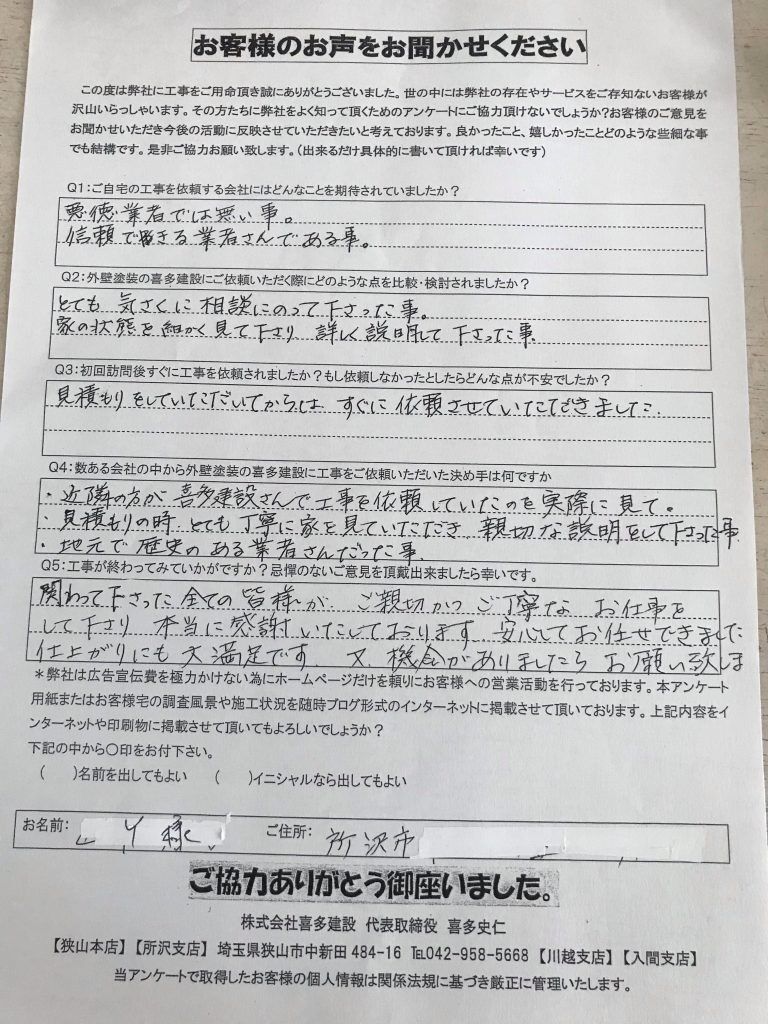 お客様のお声をお聞かせください
この度は弊社に工事をご用命頂き誠にありがとうございました。世の中には弊社の存在やサービスをご存知ないお客様が
沢山いらっしゃいます。その方たちに弊社をよく知って頂くためのアンケートにご協力頂けないでしょうか?お客様のご意見を
お聞かせいただき今後の活動に反映させていただきたいと考えております。良かったこと、嬉しかったことどのような些細な事
でも結構です。是非ご協力お願い致します。(出来るだけ具体的に書いて頂ければ幸いです)
Q1:ご自宅の工事を依頼する会社にはどんなことを期待されていましたか?
悪徳業者では無い事。
信頼できる業者さんである事。
Q2:外壁塗装の喜多建設にご依頼いただく際にどのような点を比較・検討されましたか?
とても気さくに相談にのって下さった事。
家の状態を細かく見て下さり 詳しく説明して下さった事.
Q3:初回訪問後すぐに工事を依頼されましたか?もし依頼しなかったとしたらどんな点が不安でしたか?
見積もりをしていただいてからは すぐに依頼させていただきました.
Q4:数ある会社の中から外壁塗装の喜多建設に工事をご依頼いただいた決め手は何ですか
・近隣の方が喜多建設さんで工事を依頼していたのを実際に見て。
・見積もりの時 とても丁寧に家を見ていただき 親切な説明をして下さった事
・地元で歴史のある業者さんだった事.
Q5:工事が終わってみていかがですか?忌憚のないご意見を頂戴出来ましたら幸いです。
関わって下さった全ての皆様が、ご親切かつご丁寧な お仕事を
して下さり 本当に感謝いたしております. 安心してお任せできました
仕上がりにも大満足です. 又、機会がありましたら お願い致しま
*弊社は広告宣伝費を極力かけない為にホームページだけを頼りにお客様への営業活動を行っております。本アンケート
用紙またはお客様宅の調査風景や施工状況を随時ブログ形式のインターネットに掲載させて頂いております。上記内容をイ
ンターネットや印刷物に掲載させて頂いてもよろしいでしょうか?
下記の中から〇印をお付下さい。
( )名前を出してもよい ( )イニシャルなら出してもよい
お名前: Y様 ご住所: 所沢市
ご協力ありがとう御座いました。
株式会社喜多建設 代表取締役 喜多史仁
【狭山本店】【所沢支店】 埼玉県狭山市中新田 484-16 ℡042-958-5668 【川越支店】【入間支店】
当アンケートで取得したお客様の個人情報は関係法規に基づき厳正に管理いたします。